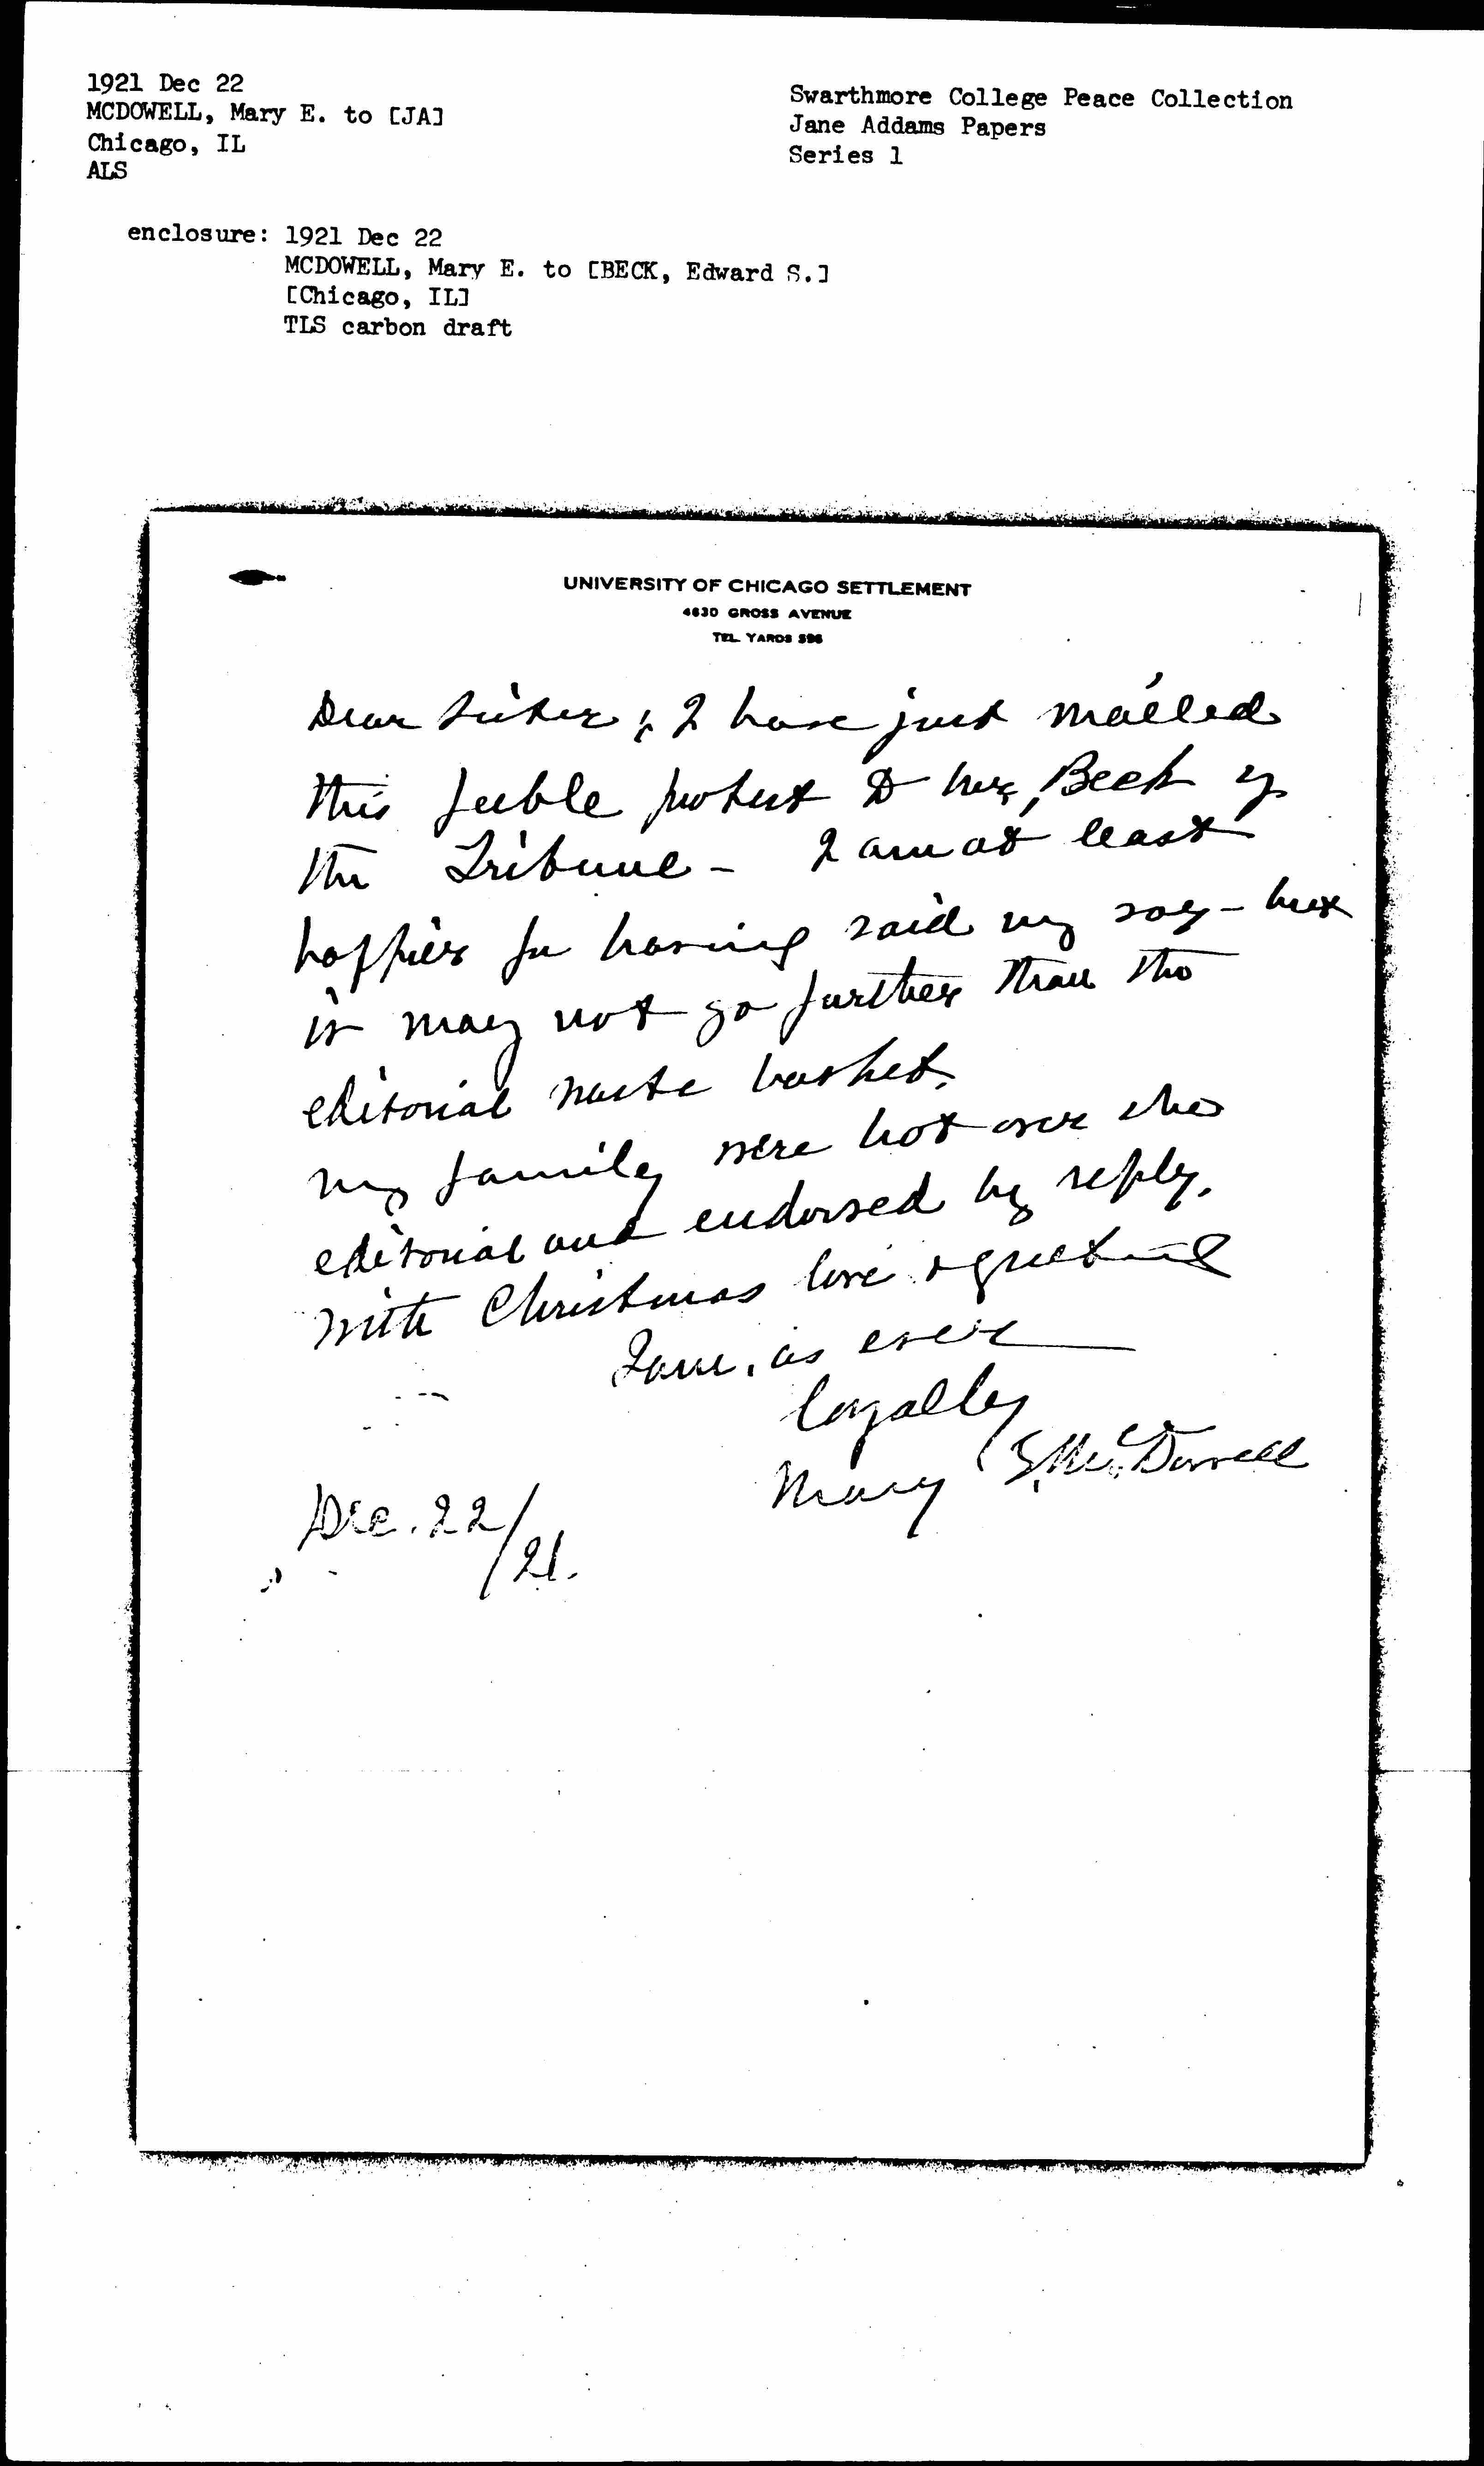 1921 Dec 22
MCDOWELL, Mary E. to [JA]
Chicago, IL
ALS
Swarthmore College Peace Collection
Jane Addams Papers
Series 1
enclosure: 1921 Dec 22
MCDOWELL, Mary E. to [BECK, Edward S.]
[Chicago, IL]
TLS carbon draft
UNIVERSITY OF CHICAGO SETTLEMENT
4630 GROSS AVENUE
TEL. YARDS 596
Dear Sister; I have just mailed
this feeble protest to Mr. Beck of
the Tribune - I am at least
happier for having said my say - but
it may not go further than the
editorial waste basket.
My family were hot over the
editorial and endorsed my reply.
With Christmas love & greeting
I am, as ever
loyally
Mary E. McDowell
Dec. 22/21.